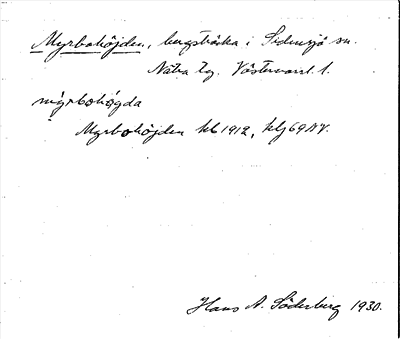 Myrbohöjden, bergsträcka i Sidensjö sn.
Nätra tg. Västernorrl. l.
myrbohögda
Myrbohöjden kb 1912, klj 69 NV.
Hans A. Söderberg 1930.